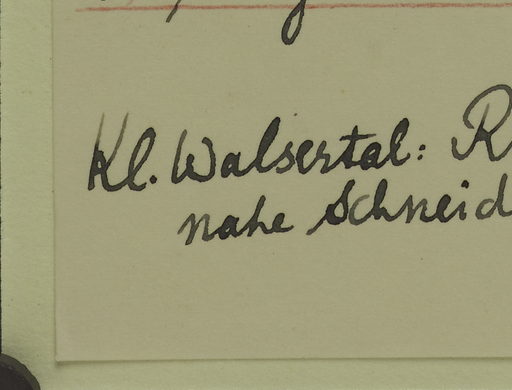 Kl. Walsertal: R
nahe Schneid